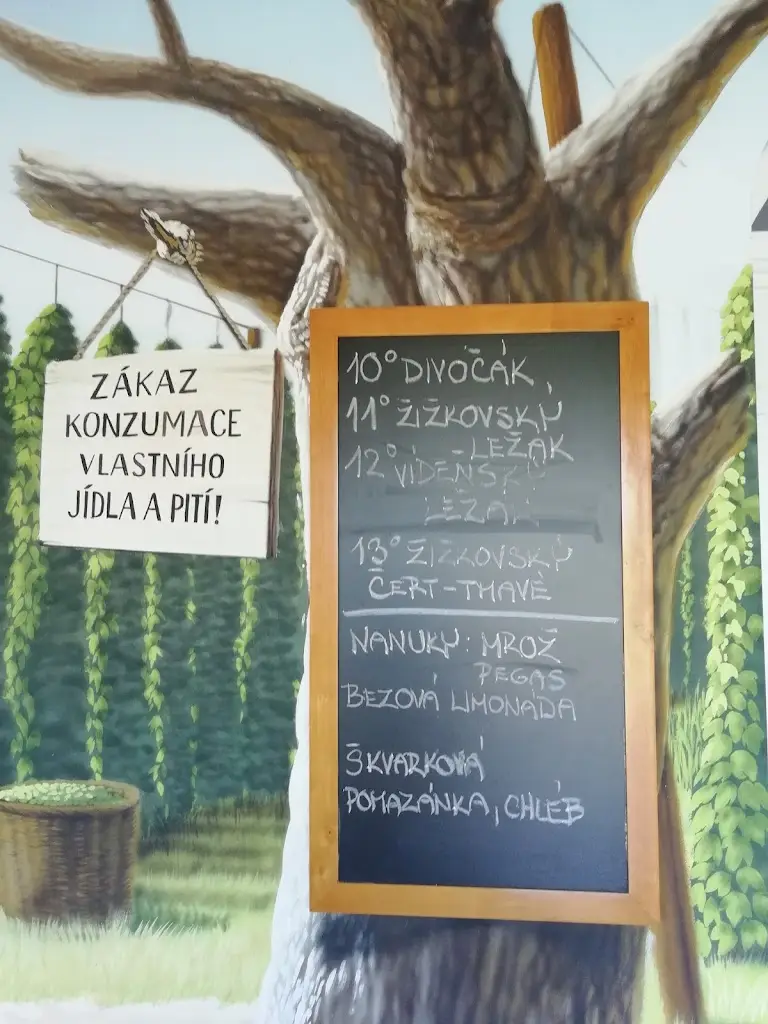 ZÁKAZ
KONZUMACE
VLASTNÍHO
JÍDLA A PITÍ!
10° DIVOČÁK
11° ŽIŽKOVSKÝ
LEŽÁK
12° VÍDEŇSKÝ
LEŽÁK
13° ŽIŽKOVSKÝ
ČERT-TMAVÉ
NANUKY: MROŽ
PEGAS
BEZOVÁ LIMONÁDA
ŠKVARKOVÁ
POMAZÁNKA, CHLÉB